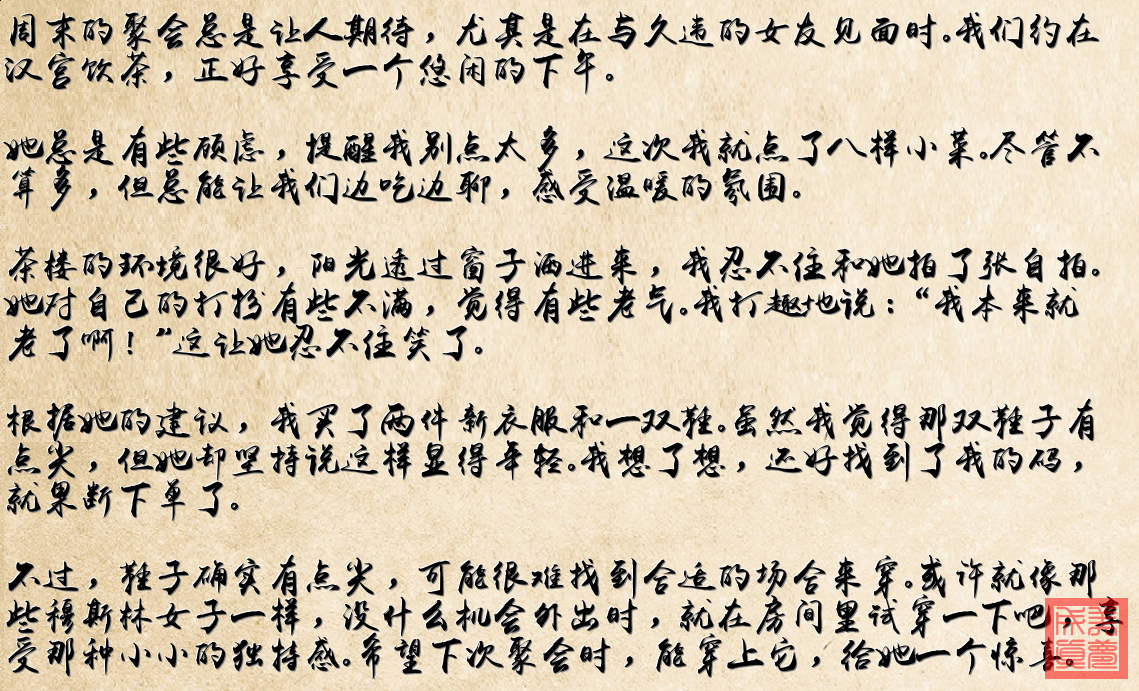 周末的聚会总是让人期待，尤其是在与久违的女友见面时。我们约在
汉宫饮茶，正好享受一个悠闲的下午。
她总是有些顾虑，提醒我别点太多，这次我就点了八样小菜。尽管不
算多，但总能让我们边吃边聊，感受温暖的氛围。
茶楼的环境很好，阳光透过窗子洒进来，我忍不住和她拍了张自拍。
她对自己的打扮有些不满，觉得有些老气。我打趣地说：“我本来就
老了啊！”这让她忍不住笑了。
根据她的建议，我买了两件新衣服和一双鞋。虽然我觉得那双鞋子有
点尖，但她却坚持说这样显得年轻。我想了想，还好找到了我的码，
就果断下单了。
不过，鞋子确实有点尖，可能很难找到合适的场合来穿。或许就像那
些穆斯林女子一样，没什么机会外出时，就在房间里试穿一下吧，享
受那种小小的独特感。希望下次聚会时，能穿上它，给她一个惊喜。